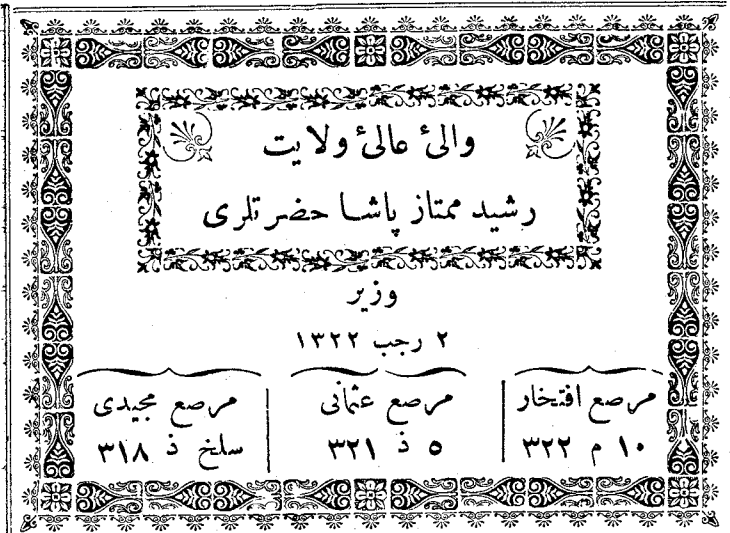 والئ عالئ ولايت
رشيد ممتاز پاشا حضرتلرى
وزير
٢ رجب ١٣٢٢
مرصع افتخار
١٠ م ٣٢٢
مرصع عثمانى
٥ ذ ٣٢١
مرصع مجيدى
سلخ ذ ٣١٨